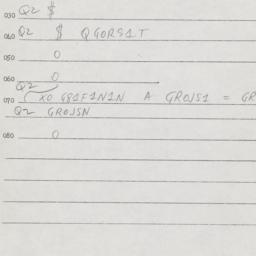 030 QZ $
040 QZ $ QGORS1T
050 0
060 0
QZ
070 ( XO G81F1N1N A GROJS1 = GR
QZ GROJSN
080 0